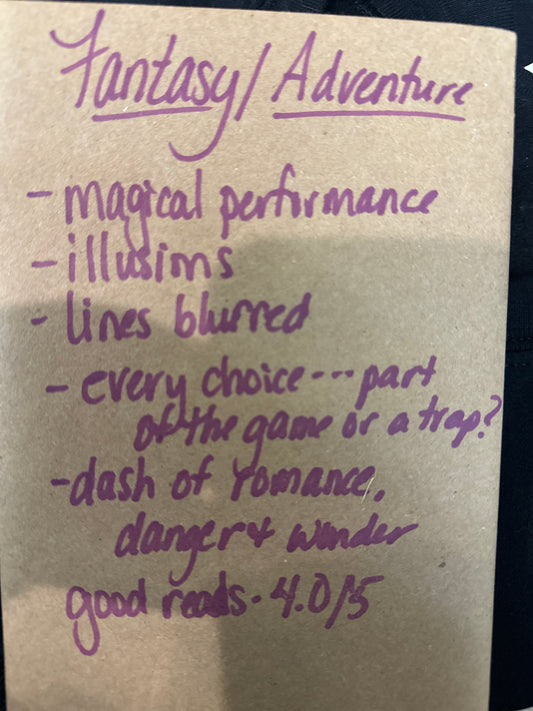 Fantasy/Adventure
- magical performance
- illusions
- lines blurred
- every choice --- part
of the game or a trap?
- dash of romance,
danger & wonder
good reads - 4.0/5